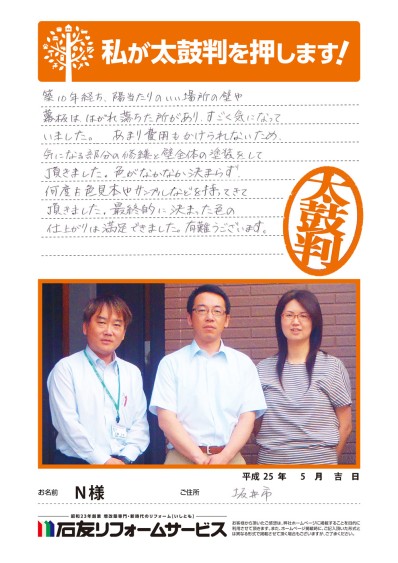 私が太鼓判を押します!
築10年経ち、陽当たりのいい場所の壁や
落板は、はがれ落ちた所があり、すごく気になって
いました。 あまり費用もかけられないため、
気になる部分の修繕と壁全体の塗装をして
頂きました。色がなかなか決まらず、
何度も色見本やサンプルなどを持ってきて
頂きました。最終的に決まった色の
仕上がりは満足できました。有難うございます。
太鼓判
平成 25 年 5 月 吉 日
お名前 N様 ご住所 坂井市
昭和23年創業 増改築専門・新時代のリフォーム(いしとも)
石友リフォームサービス
お客様から頂いたご感想は、弊社ホームページに掲載することを目的に
利用させて頂きます。また、ホームページ掲載時に、ご記入頂いた形式と
は異なる形式で掲載させて頂く場合もございますが、ご了承ください。